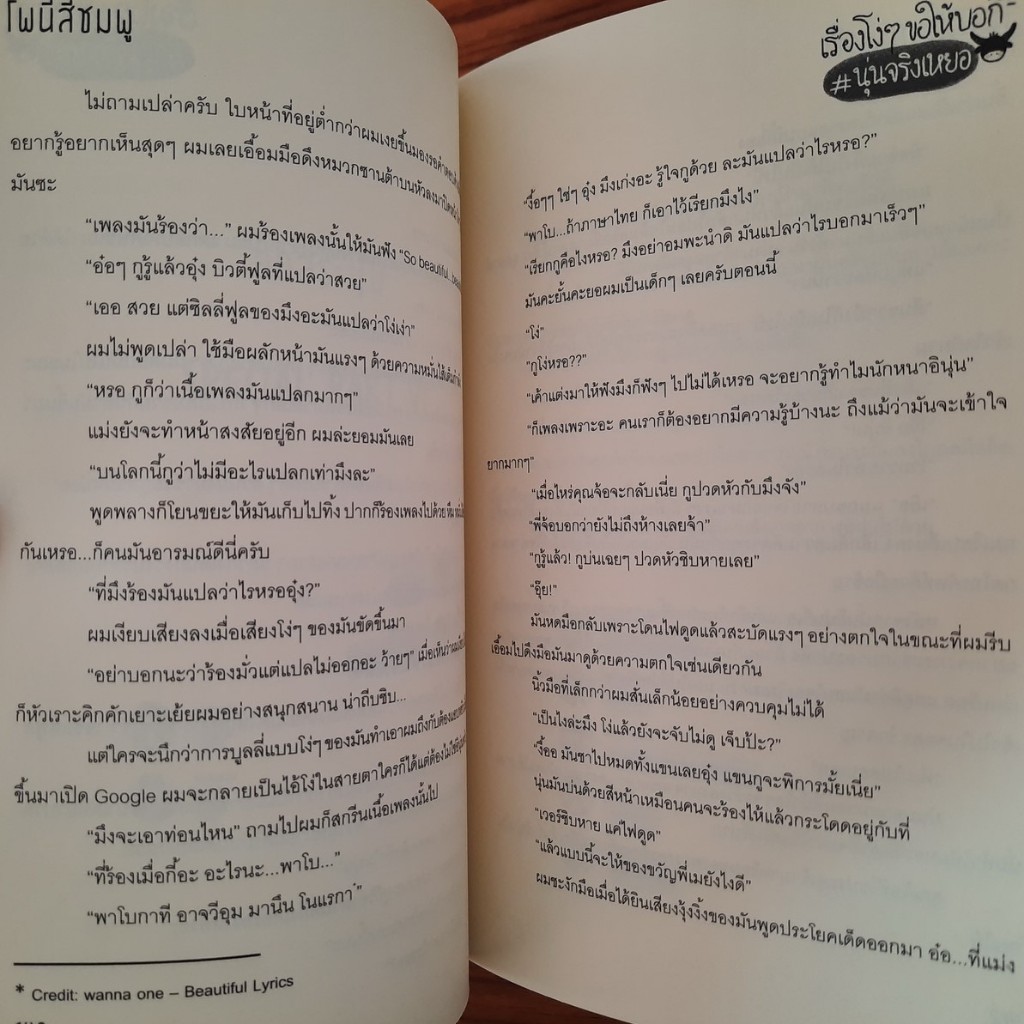 โพนี่สีชมพู
ไม่ถามเปล่าครับ ใบหน้าที่อยู่ต่ำกว่าผมเงยขึ้นมองรอคำตอบ
อยากรู้อยากเห็นสุดๆ ผมเลยเอื้อมมือดึงหมวกซานต้าบนหัวลงมาปิด
มันซะ
“เพลงมันร้องว่า...” ผมร้องเพลงนั้นให้มันฟัง “So beautiful..
“อ๋อๆ กูรู้แล้วอุ๋ง บิวตี้ฟูลที่แปลว่าสวย”
“เออ สวย แต่ซิลลี่ฟูลของมึงอะมันแปลว่าโง่เง่า”
ผมไม่พูดเปล่า ใช้มือผลักหน้ามันแรงๆ ด้วยความหมั่นไส้
“หรอ กูก็ว่าเนื้อเพลงมันแปลกมากๆ”
แม่งยังจะทำหน้าสงสัยอยู่อีก ผมล่ะยอมมันเลย
“บนโลกนี้กูว่าไม่มีอะไรแปลกเท่ามึงละ”
พูดพลางก็โยนขยะให้มันเก็บไปทิ้ง ปากก็ร้องเพลงไปด้วย
กันเหรอ...ก็คนมันอารมณ์ดีนี่ครับ
“ที่มึงร้องมันแปลว่าไรหรออุ๋ง?”
ผมเงียบเสียงลงเมื่อเสียงโง่ๆ ของมันขัดขึ้นมา
“อย่าบอกนะว่าร้องมั่วแต่แปลไม่ออกอะ ว้ายๆ” เมื่อเห็นว่าผมเงียบ
ก็หัวเราะคิกคักเยาะเย้ยผมอย่างสนุกสนาน น่าถีบชิบ...
แต่ใครจะนึกว่าการบูลลี่แบบโง่ๆ ของมันทำเอาผมถึงกับต้อง
ขึ้นมาเปิด Google ผมจะกลายเป็นไอ้โง่ในสายตาใครก็ได้แต่ต้องไม่ใช่
“มึงจะเอาท่อนไหน” ถามไปผมก็สกรีนเนื้อเพลงนั้นไป
“ที่ร้องเมื่อกี้อะ อะไรนะ...พาโบ...”
“พาโบกาที อาจวีอุม มานึน โนแรกา*”
* Credit: wanna one – Beautiful Lyrics
เรื่องโง่ๆ ขอให้บอก
#นุ่นจริงเหยอ
“งื้อๆๆ ใช่ๆ อุ๋ง มึงเก่งอะ รู้ใจกูด้วย ละมันแปลว่าไรหรอ?”
“พาโบ...ถ้าภาษาไทย ก็เอาไว้เรียกมึงไง”
“เรียกกูคือไงหรอ? มึงอย่าอมพะนำดิ มันแปลว่าไรบอกมาเร็วๆ”
มันคะยั้นคะยอผมเป็นเด็กๆ เลยครับตอนนี้
“โง่”
“กูโง่หรอ??”
“เค้าแต่งมาให้ฟังมึงก็ฟังๆ ไปไม่ได้เหรอ จะอยากรู้ทำไมนักหนาอินุ่น”
“ก็เพลงเพราะอะ คนเราก็ต้องอยากมีความรู้บ้างนะ ถึงแม้ว่ามันจะเข้าใจ
ยากมากๆ”
“เมื่อไหร่คุณจ้อจะกลับเนี่ย กูปวดหัวกับมึงจัง”
“พี่จ้อบอกว่ายังไม่ถึงห้างเลยจ้า”
“กูรู้แล้ว! กูบ่นเฉยๆ ปวดหัวชิบหายเลย”
“อุ๊ย!”
มันหดมือกลับเพราะโดนไฟดูดแล้วสะบัดแรงๆ อย่างตกใจในขณะที่ผมรีบ
เอื้อมไปดึงมือมันมาดูด้วยความตกใจเช่นเดียวกัน
นิ้วมือที่เล็กกว่าผมสั่นเล็กน้อยอย่างควบคุมไม่ได้
“เป็นไงล่ะมึง โง่แล้วยังจะจับไม่ดู เจ็บป้ะ?”
“งื้ออ มันชาไปหมดทั้งแขนเลยอุ๋ง แขนกูจะพิการมั้ยเนี่ย”
นุ่นมันบ่นด้วยสีหน้าเหมือนคนจะร้องไห้แล้วกระโดดอยู่กับที่
“เวอร์ชิบหาย แค่ไฟดูด”
“แล้วแบบนี้จะให้ของขวัญพี่เมยังไงดี”
ผมชะงักมือเมื่อได้ยินเสียงงุ้งงิ้งของมันพูดประโยคเด็ดออกมา อ๋อ...ที่แม่ง